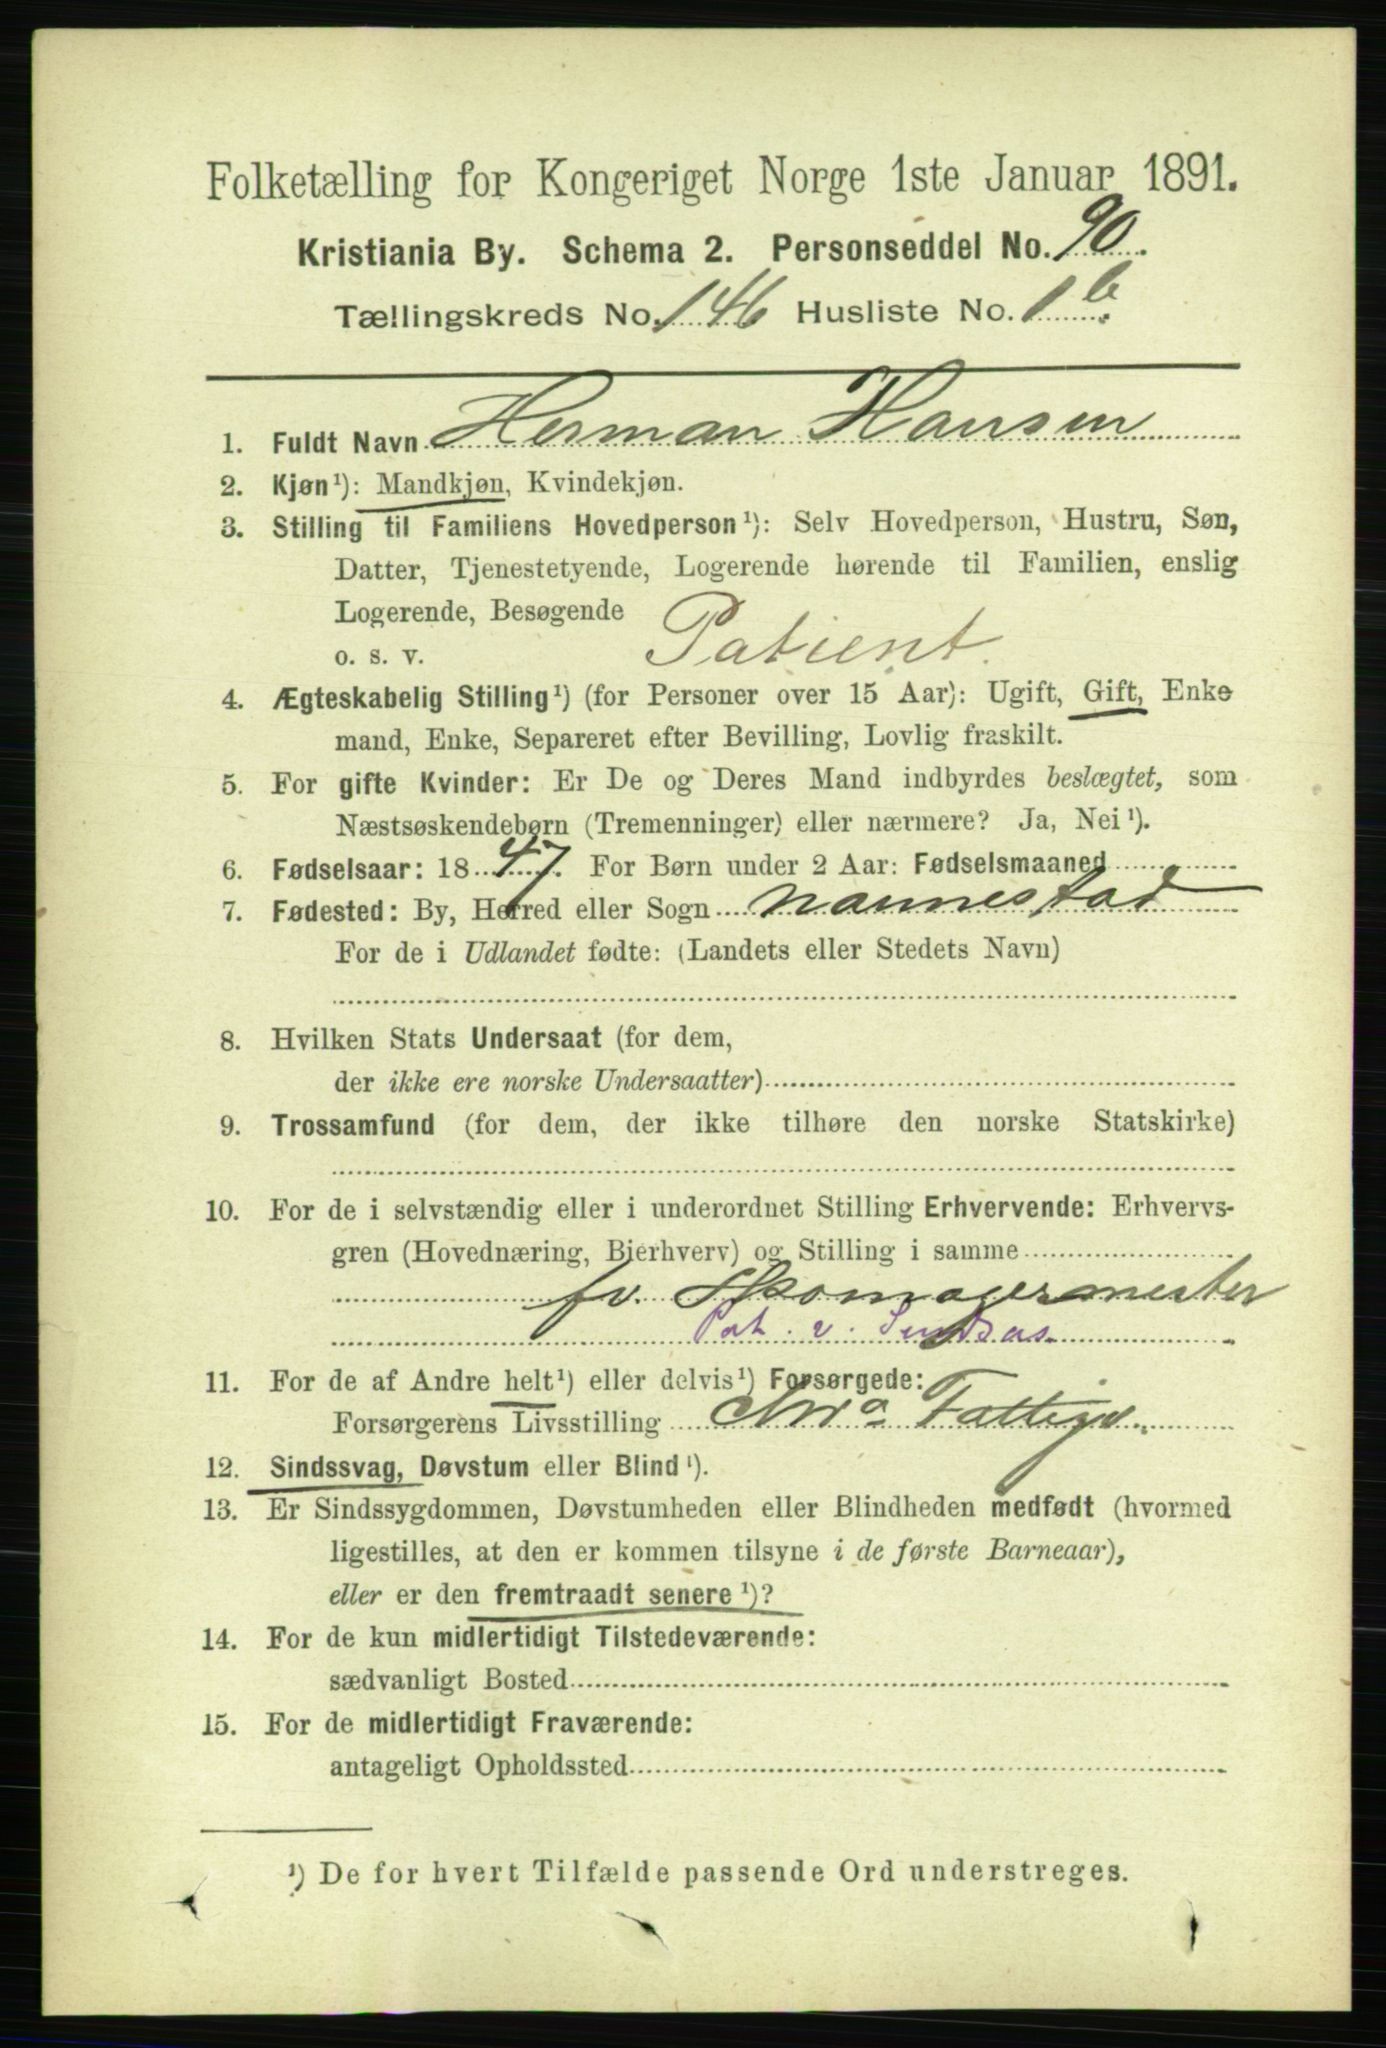 Folketælling for Kongeriget Norge 1ste Januar 1891.
Kristiania By. Schema 2. Personseddel No. 90.
Tællingskreds No. 146 Husliste No. 1 b.
1. Fuldt Navn Herman Hansen
2. Kjøn¹): Mandkjøn, Kvindekjøn.
3. Stilling til Familiens Hovedperson¹): Selv Hovedperson, Hustru, Søn,
Datter, Tjenestetyende, Logerende hørende til Familien, enslig
Logerende, Besøgende
o. s. v. Patient.
4. Ægteskabelig Stilling¹) (for Personer over 15 Aar): Ugift, Gift, Enke
mand, Enke, Separeret efter Bevilling, Lovlig fraskilt.
5. For gifte Kvinder: Er De og Deres Mand indbyrdes beslægtet, som
Næstsøskendebørn (Tremenninger) eller nærmere? Ja, Nei¹).
6. Fødselsaar: 1847. For Børn under 2 Aar: Fødselsmaaned
7. Fødested: By, Herred eller Sogn Nannestad
For de i Udlandet fødte: (Landets eller Stedets Navn)
8. Hvilken Stats Undersaat (for dem,
der ikke ere norske Undersaatter)
9. Trossamfund (for dem, der ikke tilhøre den norske Statskirke)
10. For de i selvstændig eller i underordnet Stilling Erhvervende: Erhvervs-
gren (Hovednæring, Bierhverv) og Stilling i samme
fv. Skomagermester
Pat. v. Sindsas.
11. For de af Andre helt¹) eller delvis¹) Forsørgede:
Forsørgerens Livsstilling Chr.a Fattigv.
12. Sindssvag, Døvstum eller Blind¹).
13. Er Sindssygdommen, Døvstumheden eller Blindheden medfødt (hvormed
ligestilles, at den er kommen tilsyne i de første Barneaar),
eller er den fremtraadt senere¹)?
14. For de kun midlertidigt Tilstedeværende:
sædvanligt Bosted
15. For de midlertidigt Fraværende:
antageligt Opholdssted
¹) De for hvert Tilfælde passende Ord understreges.